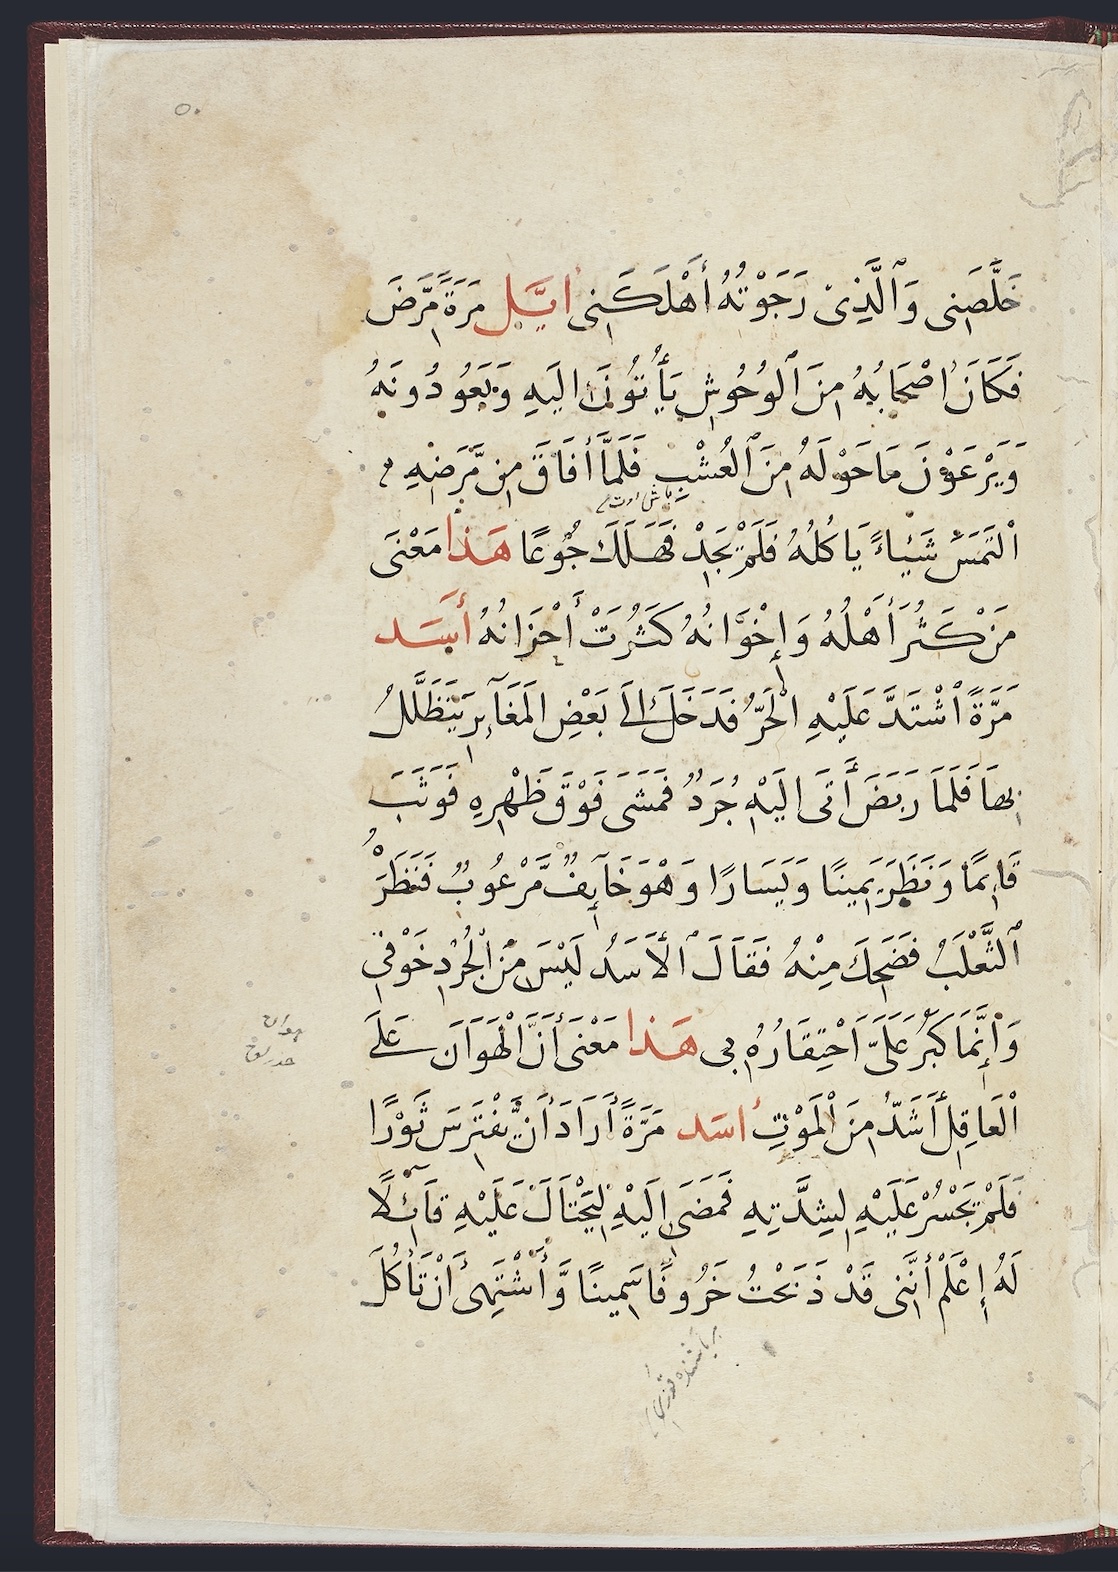 ٥٠
خَلَّصَنِى وَالَّذِىْ رَجَوْتُهُ أَهْلَكَنِى ايَّل مَرَةً مَّرَّضَ
فَكَانَ اصْحَابُهُ مِنَ الوُحُوشِ يَأْتُونَ الَيهِ وَيَعُودُونَهُ
وَيَرْعَوْنَ مَا حَوْلَهُ مِنَ العُشْبِ فَلَمَّا أَفَاقَ مِن مَّرَضِهِ
الْتَمَسَ شَيْاءً يَاكُلُهُ فَلَمْ يَجِدْ فَهَلَكَ جُوعًا هَذا مَعْنَى
مَنْ كَثُرَ أَهْلُهُ وَإِخْوَانُهُ كَثُرَتْ أَحْزَانُهُ أَسَد
مَرَّةً اشْتَدَّ عَلَيْهِ الْحَرُّ فَدَخَلَ الَى بَعْضِ المَغَآيِرِ يَتَظَلَّلُ
بِهَا فَلَمَا رَبَضَ أَتَى الَيْهِ جُرَدٌ فَمَشَى فَوْقَ ظَهْرِهِ فَوَثَبَ
قَايِمًا وَنَظَرَ يَمِينًا وَيَسَارًا وَهْوَ خَآيِفٌ مَّرْعُوبٌ فَنَظَرَهُ
الثَّعْلَبُ فَضَحِكَ مِنْهُ فَقَالَ الأَسَدُ لَيْسَ مِنَ الْجُرْدِ خَوْفِى
وَإِنَّمَا كَبُرَ عَلَىَّ احْتِقَارُهُ بِى هَذا مَعْنَى أَنَّ الْهَوَانَ عَلَى
الْعَاقِلِ أَشَدُّ مِنَ الْمَوْتِ أسَد مَرَّةً أَرَادَ أَن يَّفْتَرِسَ ثَوْرًا
فَلَمْ يَجْسُرْ عَلَيْهِ لِشِدَّتِهِ فَمَضَى إِلَيْهِ لِيَحْتَالَ عَلَيْهِ قَآئِلًا
لَهُ إِعْلَمْ أَنَّنِى قَدْ ذَبَحْتُ خَرُوفًا سَمِينًا وَّأَشْتَهِى أَنْ تَأْكُلَ